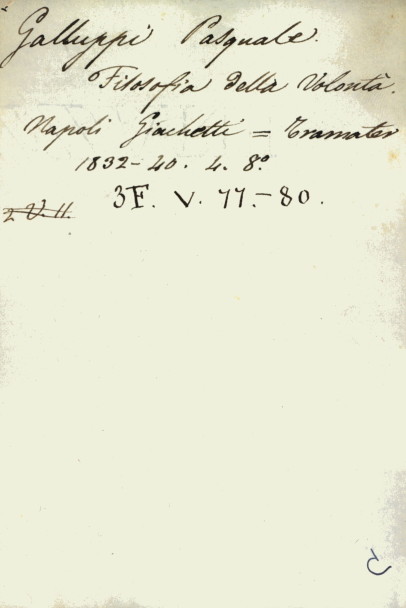 Galluppi Pasquale.
Filosofia della Volontà.
Napoli Giachetti = Tramater
1832-40. 4. 8°.
3F. V. 77.-80.
2. V. 11.